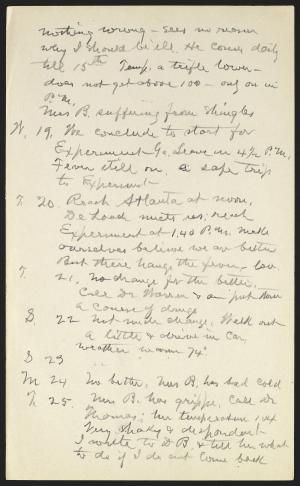 nothing wrong - sees no reason
why I should be ill. He comes daily
till 15th Temp. a trifle lower -
does not get above 100 - only on in
P.M.
Mrs B. suffering from shingles
W. 19. We conclude to start for
Experiment Ga. Leave in 4½ P.M.
Fever still on, a safe trip
to Experiment
T. 20. Reach Atlanta at noon,
De Loach meets us; reach
Experiment at 1.40 P.M. Make
ourselves believe we are better
But there hangs the fever, low
F. 21. no change for the better,
Call Dr Warren & am put upon
a course of drugs
S. 22 Not much change, Walk out
a little & drive in car,
weather warm 74°
S 23 " "
M 24 No better, Mrs B. has bad cold
T. 25. Mrs B. has grippe, call Dr
Thomas; her temperature 104
Very shaky & despondent
I write to D B. & tell him what
to do if I do not come back